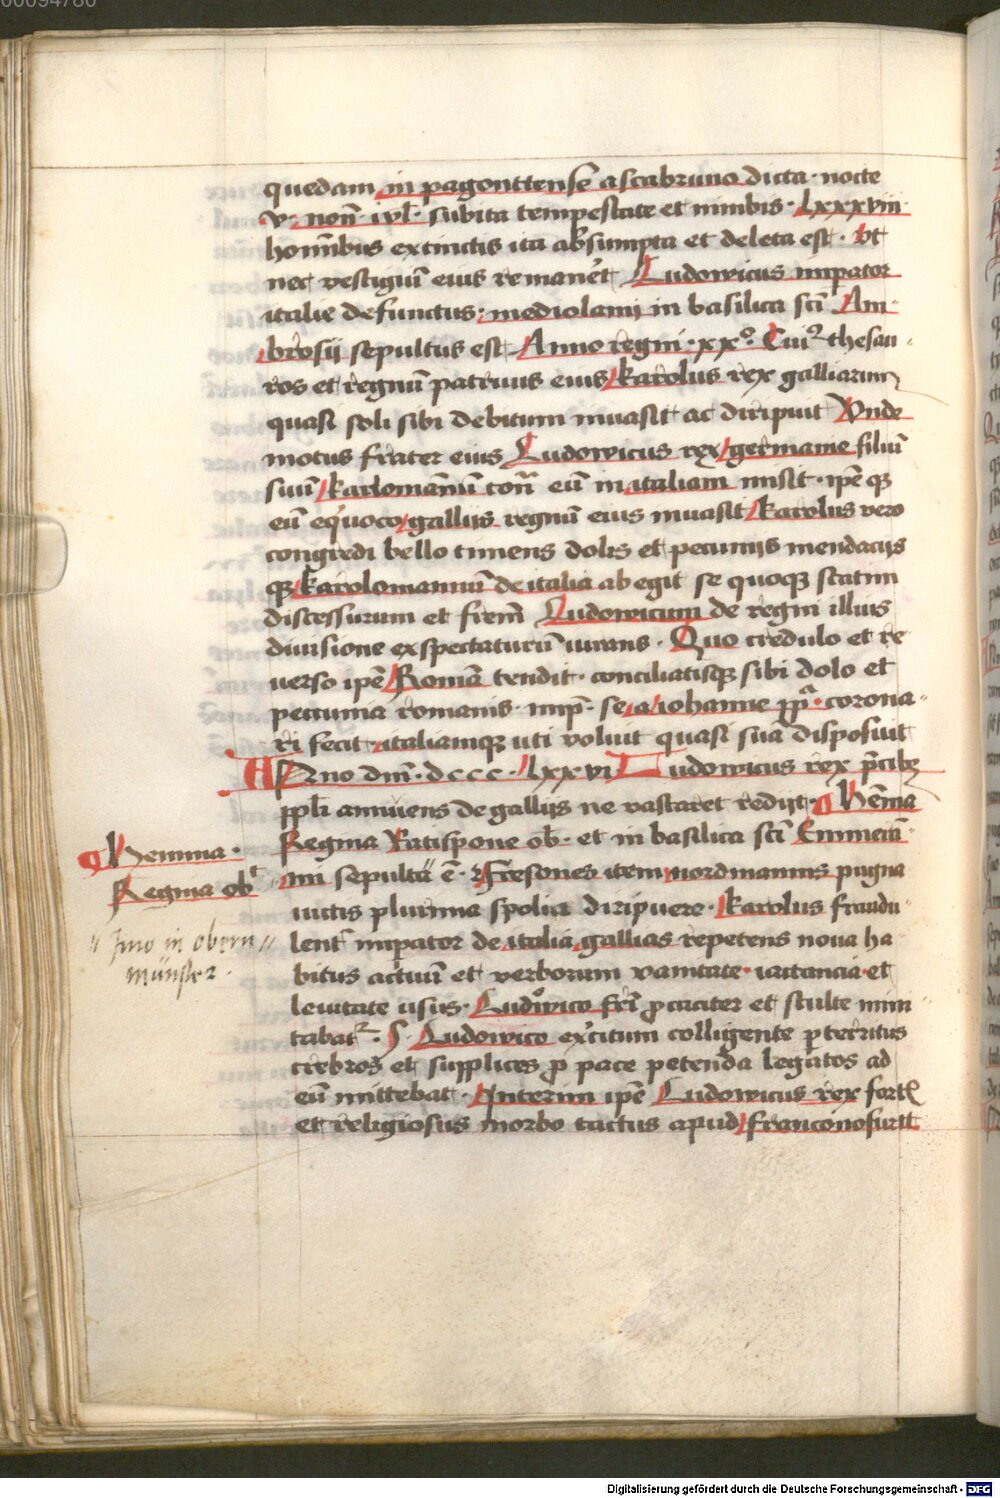 00094780
quedam in pagonttense ascabruno dicta · nocte
v · non̄ · iul̄ · subita tempestate et nimbis · lxxxviii ·
hom̄ibus extinctis ita absumpta et deleta est · Vt
nec vestigiū eius reman͛et Ludowicus imperator
italie defunctus · mediolami in basilica sc̄i Am-
brosij sepultus est Anno regni · xxº · Cui⁹ thesau-
ros et regnū patruus eius karolus rex galliarum
quasi soli sibi debitum inuasit ac diripuit Vnde
motus frater eius Ludowicus rex germanie filiū
suū karlomannū cont̄ eū in italiam misit · ip̄e qꝫ
eū equoco gallijs regnū eius inuasit karolus vero
congredi bello timens dolis et pecunijs mendacijs
qꝫ karolomannū de italia abegit se quoqꝫ statim
discessurum et frem̄ Ludowicum de regni illius
diuisione exspectaturū iurans · Quo credulo et re
uerso ip̄e Romā tendit · conciliatisqꝫ sibi dolo et
pecunia romanis · imp̄ · se a iohanne pp̄a · corona-
ri fecit italiamqꝫ uti voluit quasi suā disposuit
Anno dm̄ · dccc · lxxvi Ludowicus rex p̄cibꝫ
ppl̄i annuens de gallijs ne vastaret redijt · Hēma
Regina Ratispone ob̄ · et in basilica sc̄i Emmera-
mi sepulta ē · Fresones item nordmannis pugna
uictis plurima spolia diripuere · karolus fraudu-
lent⁹ imperator de italia gallias repetens noua ha
bitus actuū et verborum vanitate · iactancia · et
leuitate usus · Ludowico fr̄i procaciter et stulte mini
tabat⁹ · S Ludowico exercitum colligente perterritus
crebros et supplices pro pace petenda legatos ad
eū mittebat · Interim ip̄e Ludowicus rex fort̄
et religiosus morbo tactus apud franconofurtt
Hemma ·
Regina obt
Imo in obern
münster ·
Digitalisierung gefördert durch die Deutsche Forschungsgemeinschaft - DFG